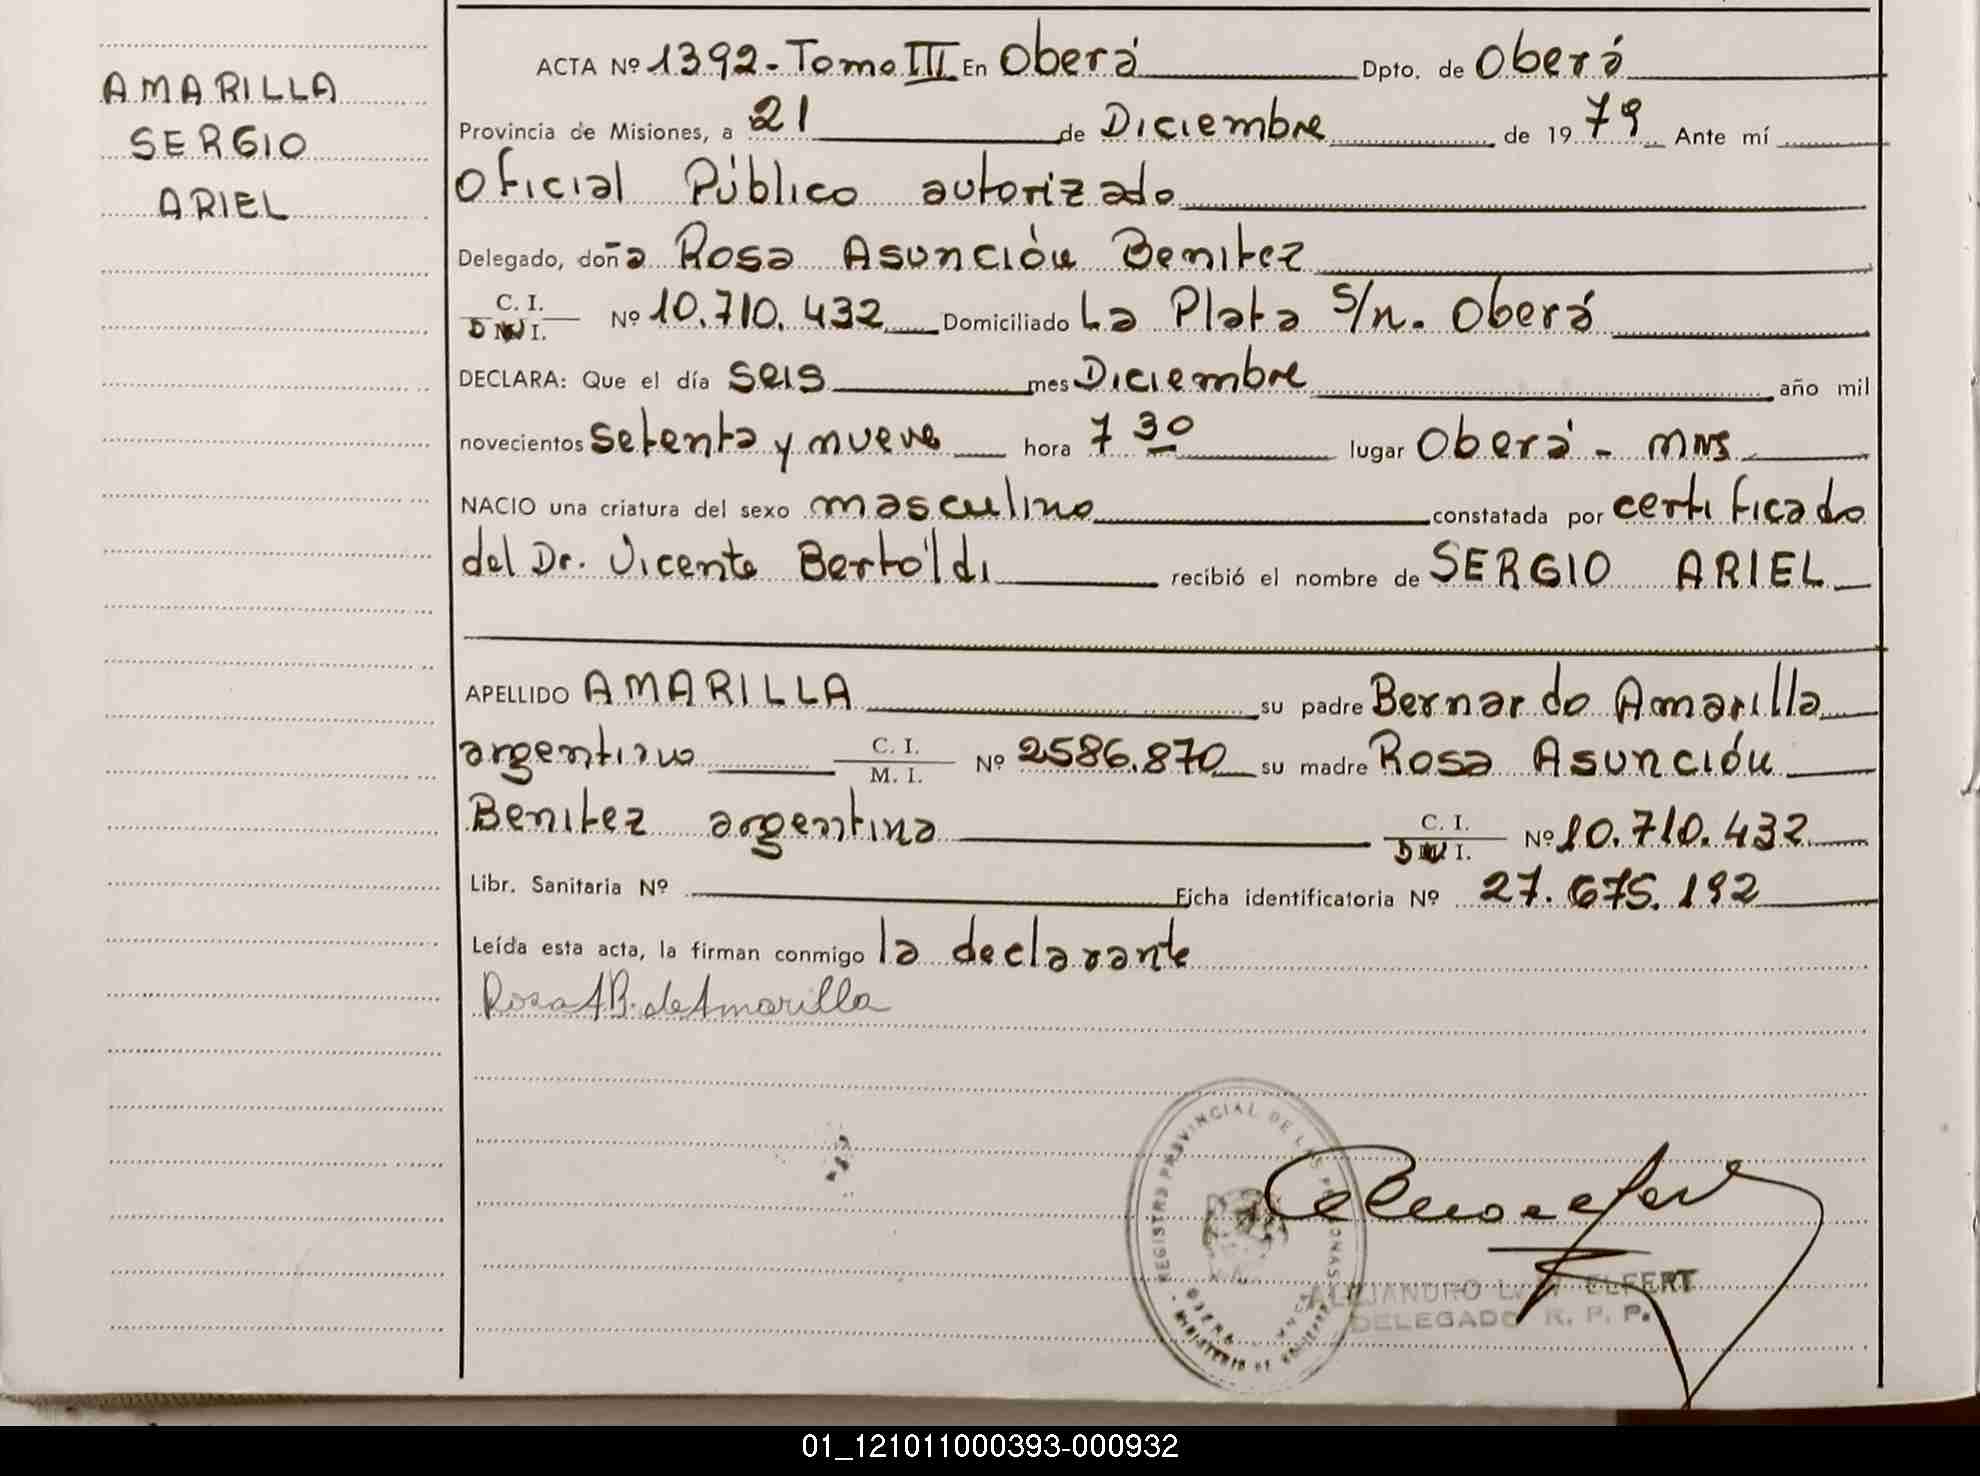 AMARILLA
SERGIO
ARIEL
ACTA Nº 1392-Tomo III En Oberá Dpto. de Oberá
Provincia de Misiones, a 21 de Diciembre de 1979 Ante mí
Oficial Público autorizado
Delegado, doña Rosa Asunción Benitez
C. I.
D N I. Nº 10.710.432 Domiciliado La Plata S/n. Oberá
DECLARA: Que el día seis mes Diciembre año mil
novecientos setenta y nueve hora 7 30 lugar Oberá - Mns
NACIO una criatura del sexo masculino constatada por certificado
del Dr. Vicente Bertóldi recibió el nombre de SERGIO ARIEL
APELLIDO AMARILLA su padre Bernardo Amarilla
argentino C. I. M. I. Nº 2586.870 su madre Rosa Asunción
Benitez argentina C. I. D N I. Nº 10.710.432
Libr. Sanitaria Nº Ficha identificatoria Nº 27.675.192
Leída esta acta, la firman conmigo la declarante
Rosa A B. de Amarilla
REGISTRO PROVINCIAL DE LAS PERSONAS
OBERA
MINISTERIO DE GOBIERNO
ALEJANDRO L. ELFERT
DELEGADO R. P. P.
01_121011000393-000932